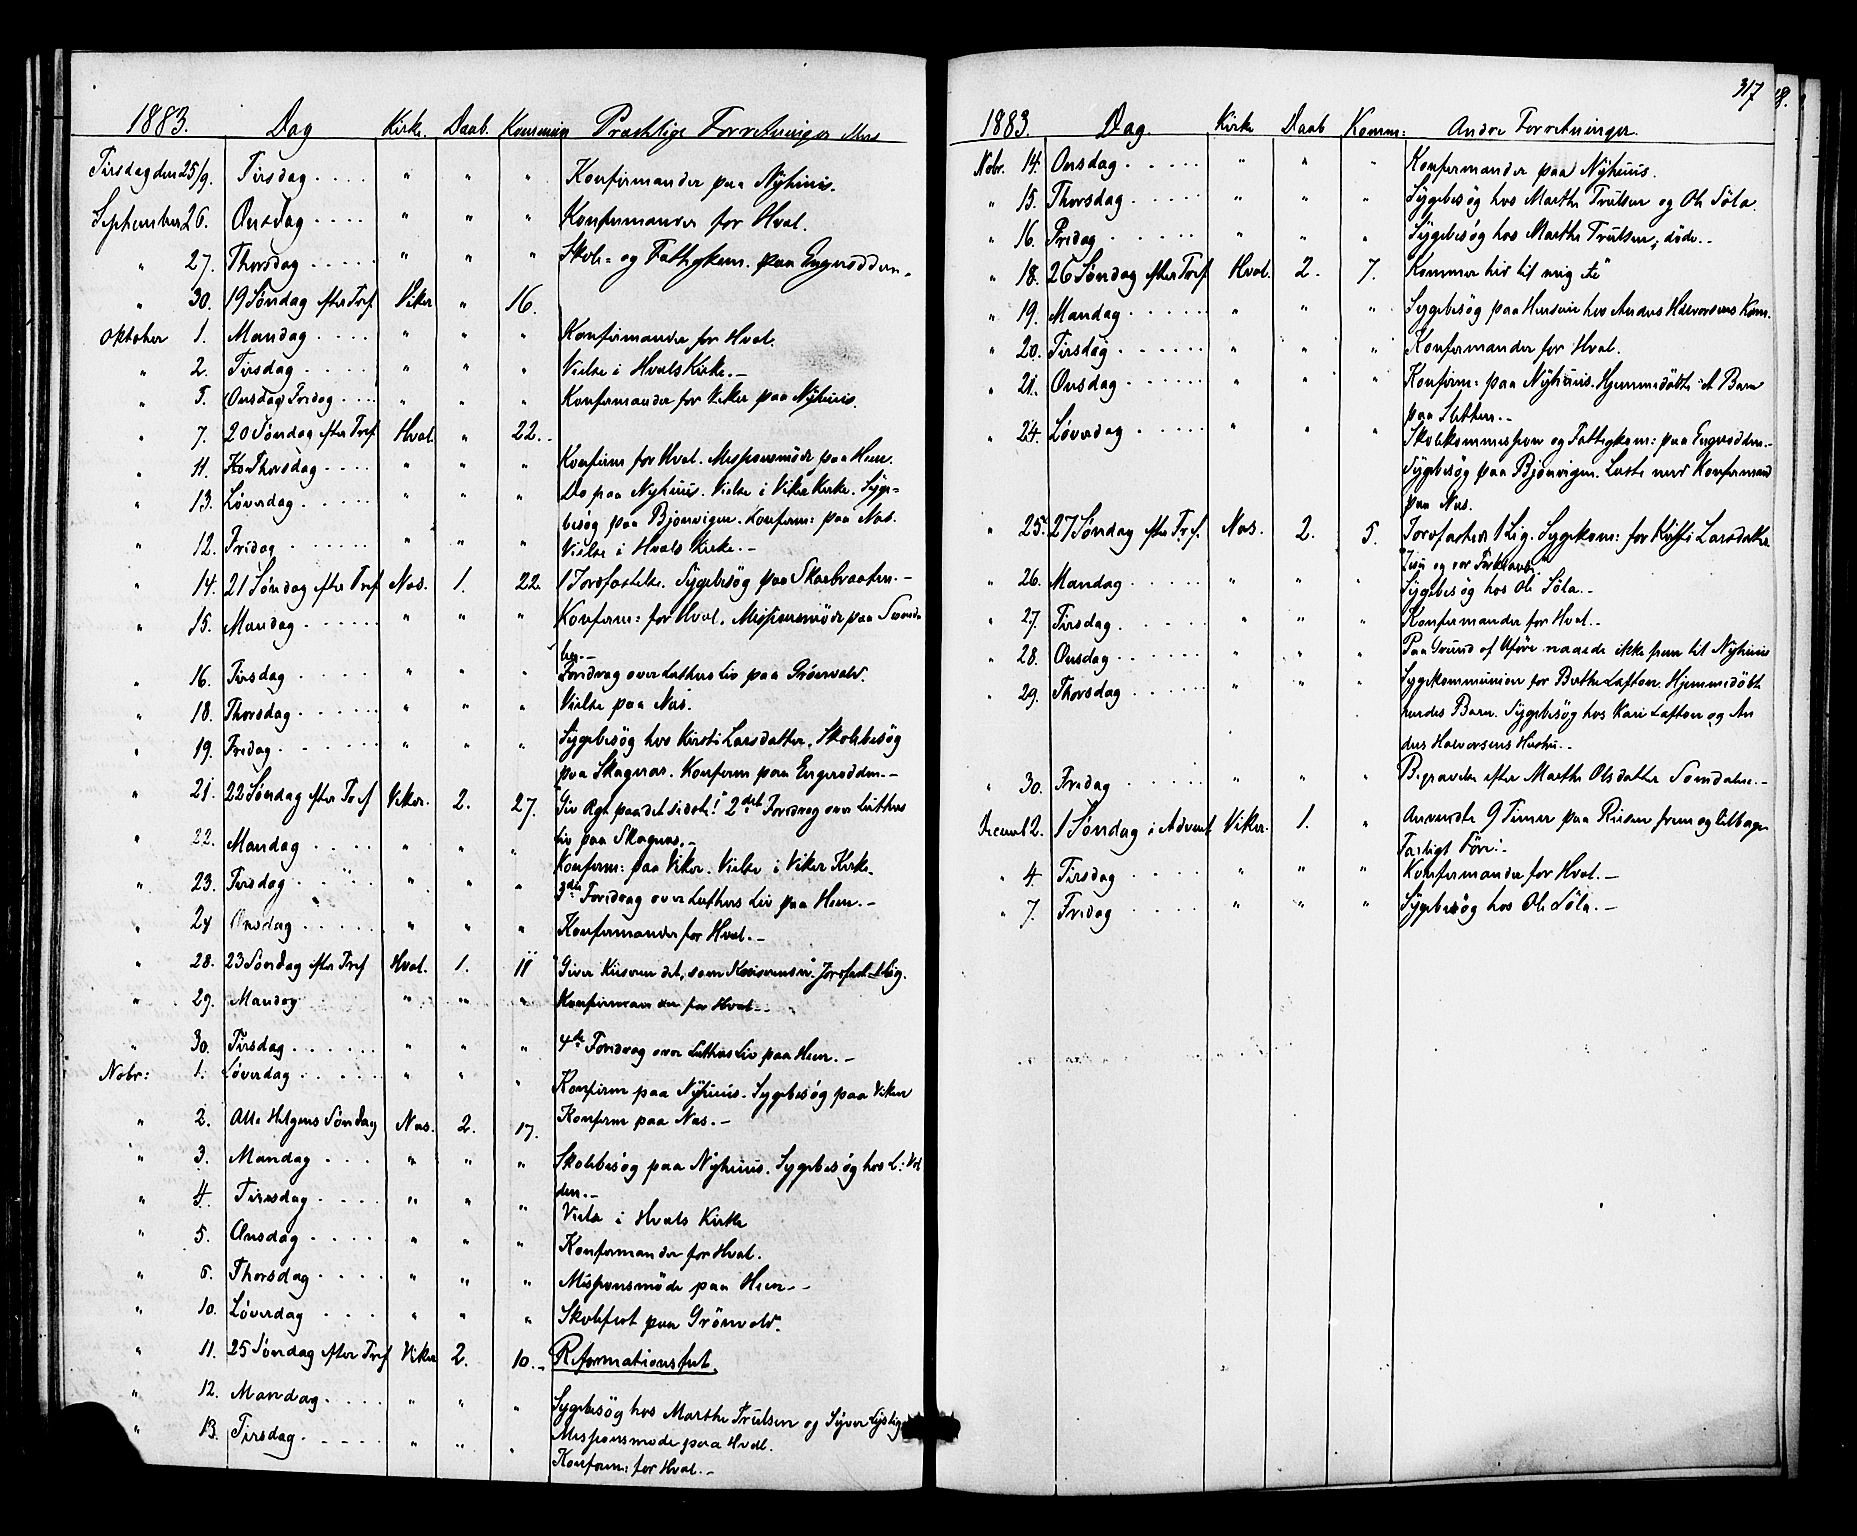 1883. Dag Kirke. Daab. Kommunion Præstlige Forretninger
Tirsdag den 25/9. Tirsdag . . . . " " " Konfirmander paa Nyhuus.
September 26. Onsdag . . . . " " " Konfirmander for Hval.
" 27. Thorsdag . . . . . " " " Skole- og Fattigkom. paa Engerodden.
" 30. 19 Søndag efter Tref. Viker " 16.
Oktober 1. Mandag . . . . . " " " Konfirmander for Hval.
" 2. Tirsdag . . . . " " " Vielse i Hvals Kirke.—
" 5. Onsdag Fredag . . . " " " Konfirmander for Viker paa Nyhuus.
" 7. 20 Søndag efter Tref. Hval. " 22.
" 11. Thorsdag . . . . " " " Konfirm for Hval. Missionsmöde paa Heen.
" 13. Løverdag . . . . " " " Do paa Nyhuus. Vielse i Viker Kirke. Syge-
besøg paa Bjonvigen. Konfirm: paa Næs.
" 12. Fredag . . . . . " " " Vielse i Hvals Kirke.—
" 14. 21 Søndag efter Tref Næs. 1. 22. 1 Jordfæstelse. Sygebesøg paa Skaabraaten.—
" 15. Mandag . . . . . " " " Konfirm: for Hval. Missionsmöde paa
" 16. Tirsdag . . . . . " " " Foredrag over Luthers Liv paa Grönvold.
" 18. Thorsdag . . . . . " " " Vielse paa Næs.
" 19. Fredag . . . . . " " " Sygebesøg hos Kirsti Larsdatter. Skolebesøg
paa Skagnæs. Konfirm paa Engerodden.—
" 21. 22 Søndag efter Tref Viker. 2. 27. Giv Agt paa det sidste! 2det Foredrag over Luthers
Liv paa Skagnæs.—
" 22. Mandag . . . . " " " Konfirm: paa Viker. Vielse i Viker Kirke.
" 23. Tirsdag . . . . " " " 3die Foredrag over Luthers Liv paa Heen.—
" 24 Onsdag . . . . . " " " Konfirmander for Hval.—
" 28. 23 Søndag efter Tref Hval. 1. 11 Giver Keiseren det, som Keiserens er. Jordfæst 1 Lig.
" 29. Mandag . . . . " " " Konfirmander for Hval.—
" 30. Tirsdag . . . . . . " " " 4de Foredrag over Luthers Liv paa Heen.—
Nobr: 1. Løverdag . . . . . " " " Konfirm paa Nyhuus. Sygebesøg paa Viker
" 2. Alle Helgens Søndag Næs. 2. 17. Konfirm paa Næs.—
" 3. Mandag . . . . " " " Skolebesøg paa Nyhuus. Sygebesøg hos
den.—
" 4. Tirsdag . . . . " " " Vielse i Hvals Kirke
" 5. Onsdag . . . . . " " " Konfirmander for Hval.
" 6. Thorsdag . . . . " " " Missionsmöde paa Heen.—
" 10. Løverdag . . . . " " " Skolefest paa Grönvold.
" 11. 25 Søndag efter Tref Viker 2. 10.— Reformationsfest.
" 12. Mandag . . . . " " " Sygebesøg hos Marthe Trulsen og Syver
" 13. Tirsdag . . . . . " " " Missionsmöde paa Hval.
Konfirm: for Hval.—
317
1883. Dag. Kirke Daab Komm: Andre Forretninger.
Nobr. 14. Onsdag . . . . . " " " Konfirmander paa Nyhuus.
" 15. Thorsdag . . . . . " " " Sygebesøg hos Marthe Trulsen og Ole Söla.
" 16. Fredag . . . . . " " " Sygebesøg hos Marthe Trulsen; döde.—
" 18. 26 Søndag efter Tref. Hval. 2. 7. Kommer hid til mig &c"
" 19. Mandag . . . . . " " " Sygebesøg paa hos Anders Halvorsens Kone.
" 20. Tirsdag . . . . . . " " " Konfirmander for Hval.
" 21. Onsdag . . . . . . " " " Konfirm: paa Nyhuus. Hjemmedöbte et Barn
paa
" 24. Løverdag . . . . . " " " Skolekommission og Fattigkom: paa Engerodden.—
Sygebesøg paa Bjonvigen. Læste med Konfirmand
paa Næs.
" 25. 27 Søndag efter Tref. Næs. 2. 5. Jordfæstede 1 Lig. Sygekom: for Kirsti Larsdatter
" 26. Mandag . . . . . " " " Sygebesøg hos Ole Söla.—
" 27. Tirsdag . . . . . . " " " Konfirmander for Hval.—
" 28. Onsdag . . . . . " " " Paa Grund af Uföre naaede ikke frem til Nyhuus
" 29. Thorsdag . . . . . " " " Sygekommunion for Berthe Löften. Hjemmedöbte
hendes Barn. Sygebesøg hos Kari Löften og An
ders Halvorsens Hustru.—
" 30. Fredag . . . . . " " " Begravelse efter Marthe Olsdatter Somdalen.—
Decemb 2. 1 Søndag i Advent Viker. 1. " Anvendte 9 Timer paa Reisen frem og tilbage
Farligt Före.—
" 4. Tirsdag . . . . . " " " Konfirmander for Hval.—
" 7. Fredag . . . . . " " " Sygebesøg hos Ole Söla.—